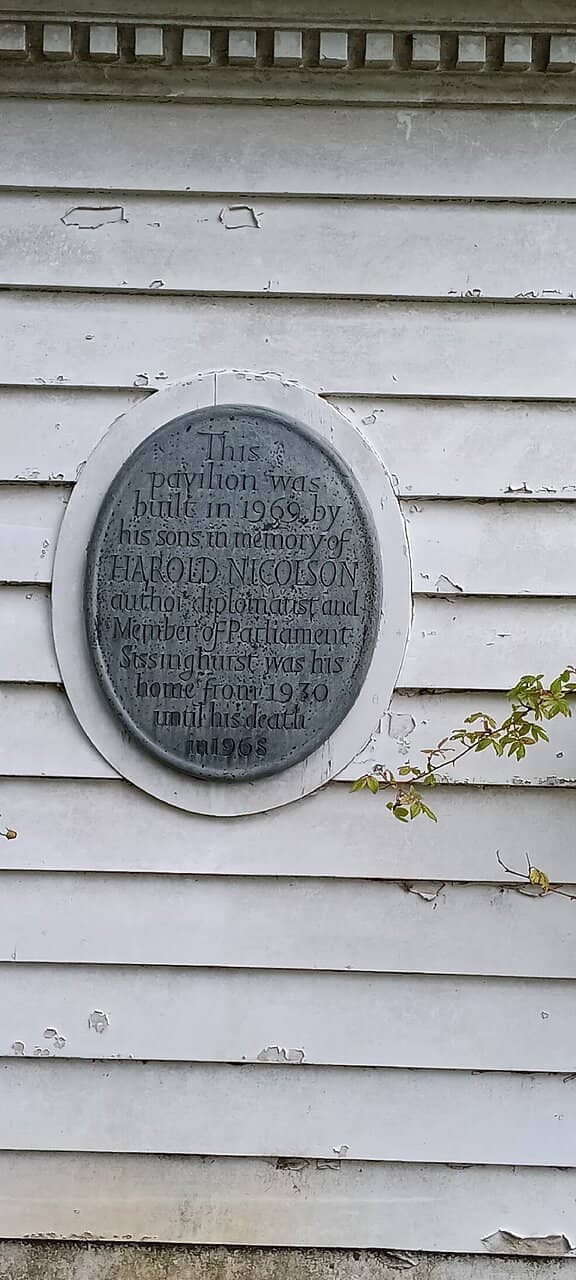 This
pavilion was
built in 1969 by
his sons in memory of
HAROLD NICOLSON
author diplomatist and
Member of Parliament
Sissinghurst was his
home from 1930
until his death
in 1968